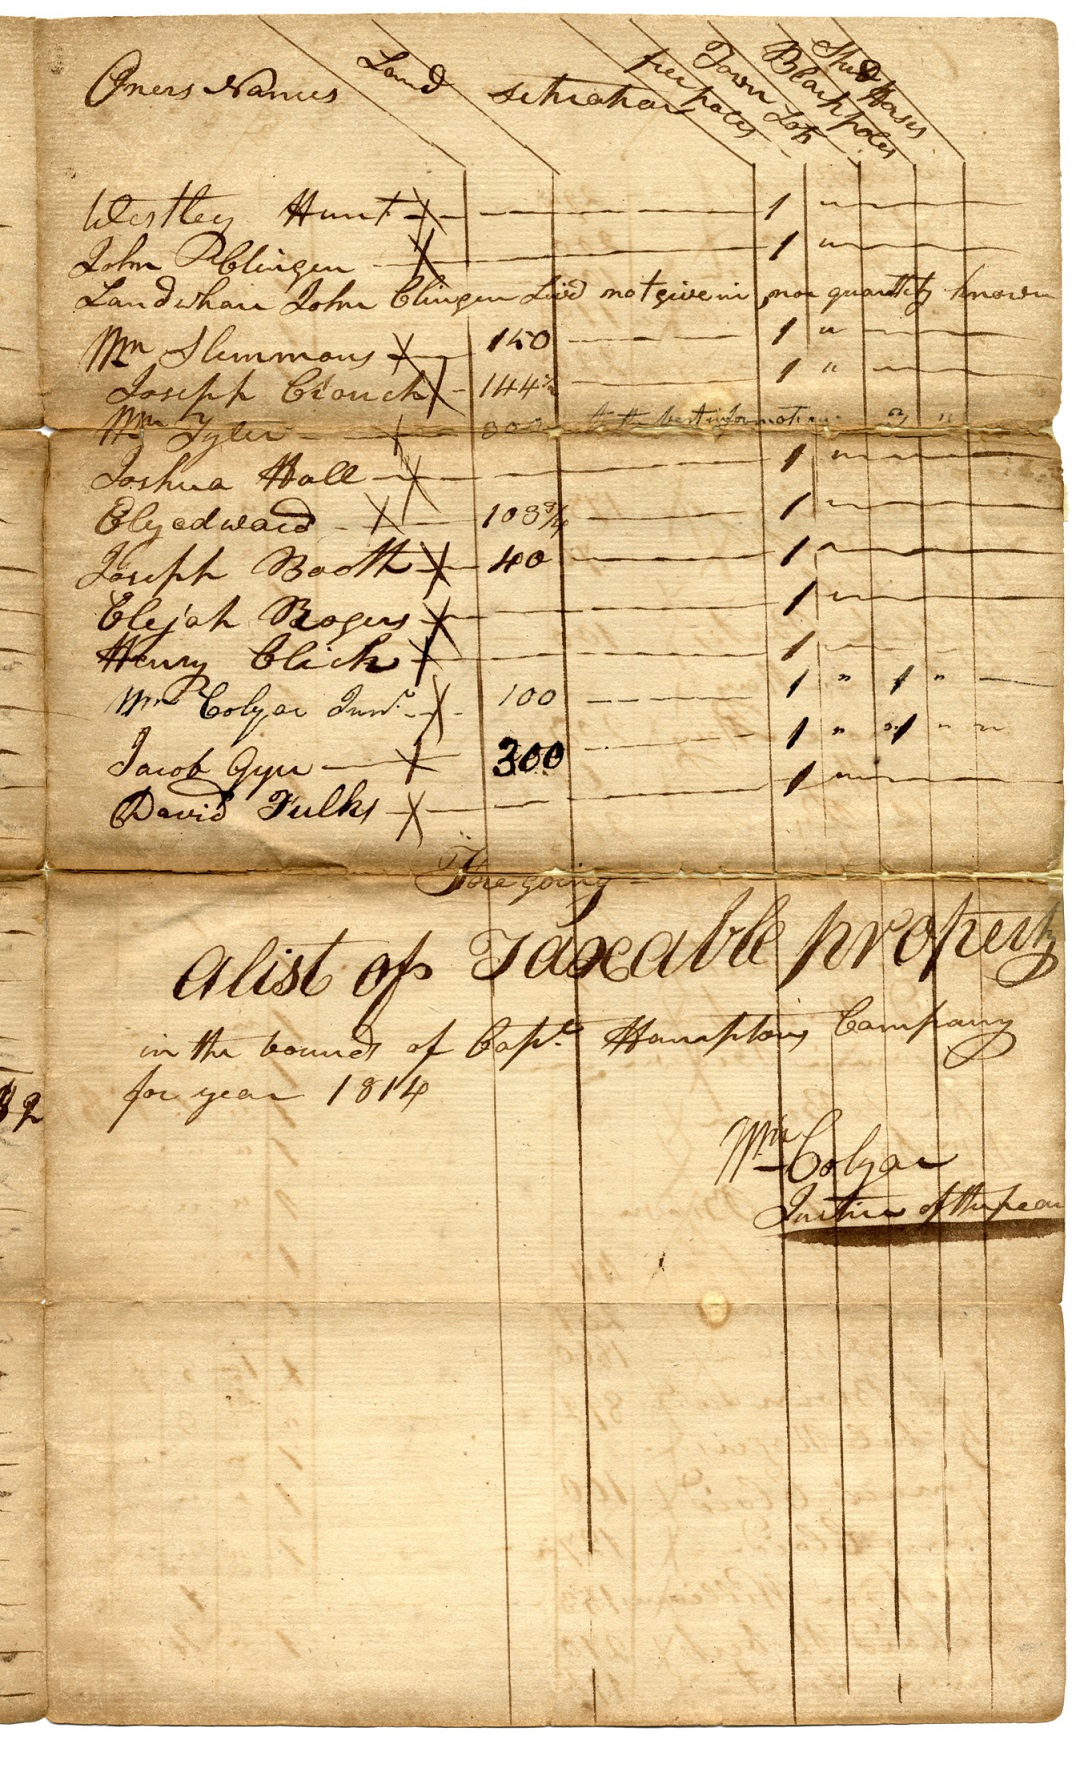 Oners Names Land setuation free poles Town Lots Black poles Stud Horses
Westley Hunt X — — 1 "
John P Clingen X — 1 "
Land whare John Clingen Livd not give in nor quantity known
Wm Slimmons X 150 — 1 "
Joseph Crouch X 144½ — 1 "
Wm Tyler — X to the best information 3 "
Joshua Hall X — 1 "
Ely edward X 108¾ — 1 "
Joseph Booth X 40 — 1 "
Elejah Rogers X — 1 "
Henry Click X — 1
Wm Colyar Junr. X 100 — 1 " 1 "
Jacob Gyer X 300 — 1 " 1 " "
David Fulks X — 1 "
Fore going
A list of Taxable property
in the bounds of Capt. Hamptons Company
for year 1814
Wm Colyar
Justice of the peac